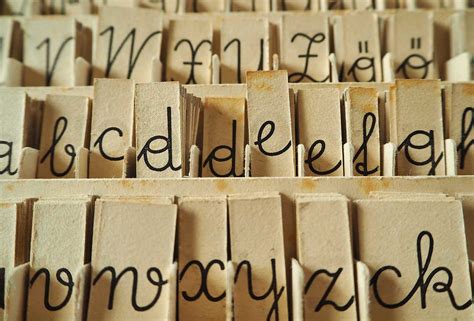 V W X Y Z ö ö
a b c d d e e f g h
v w x y z ck